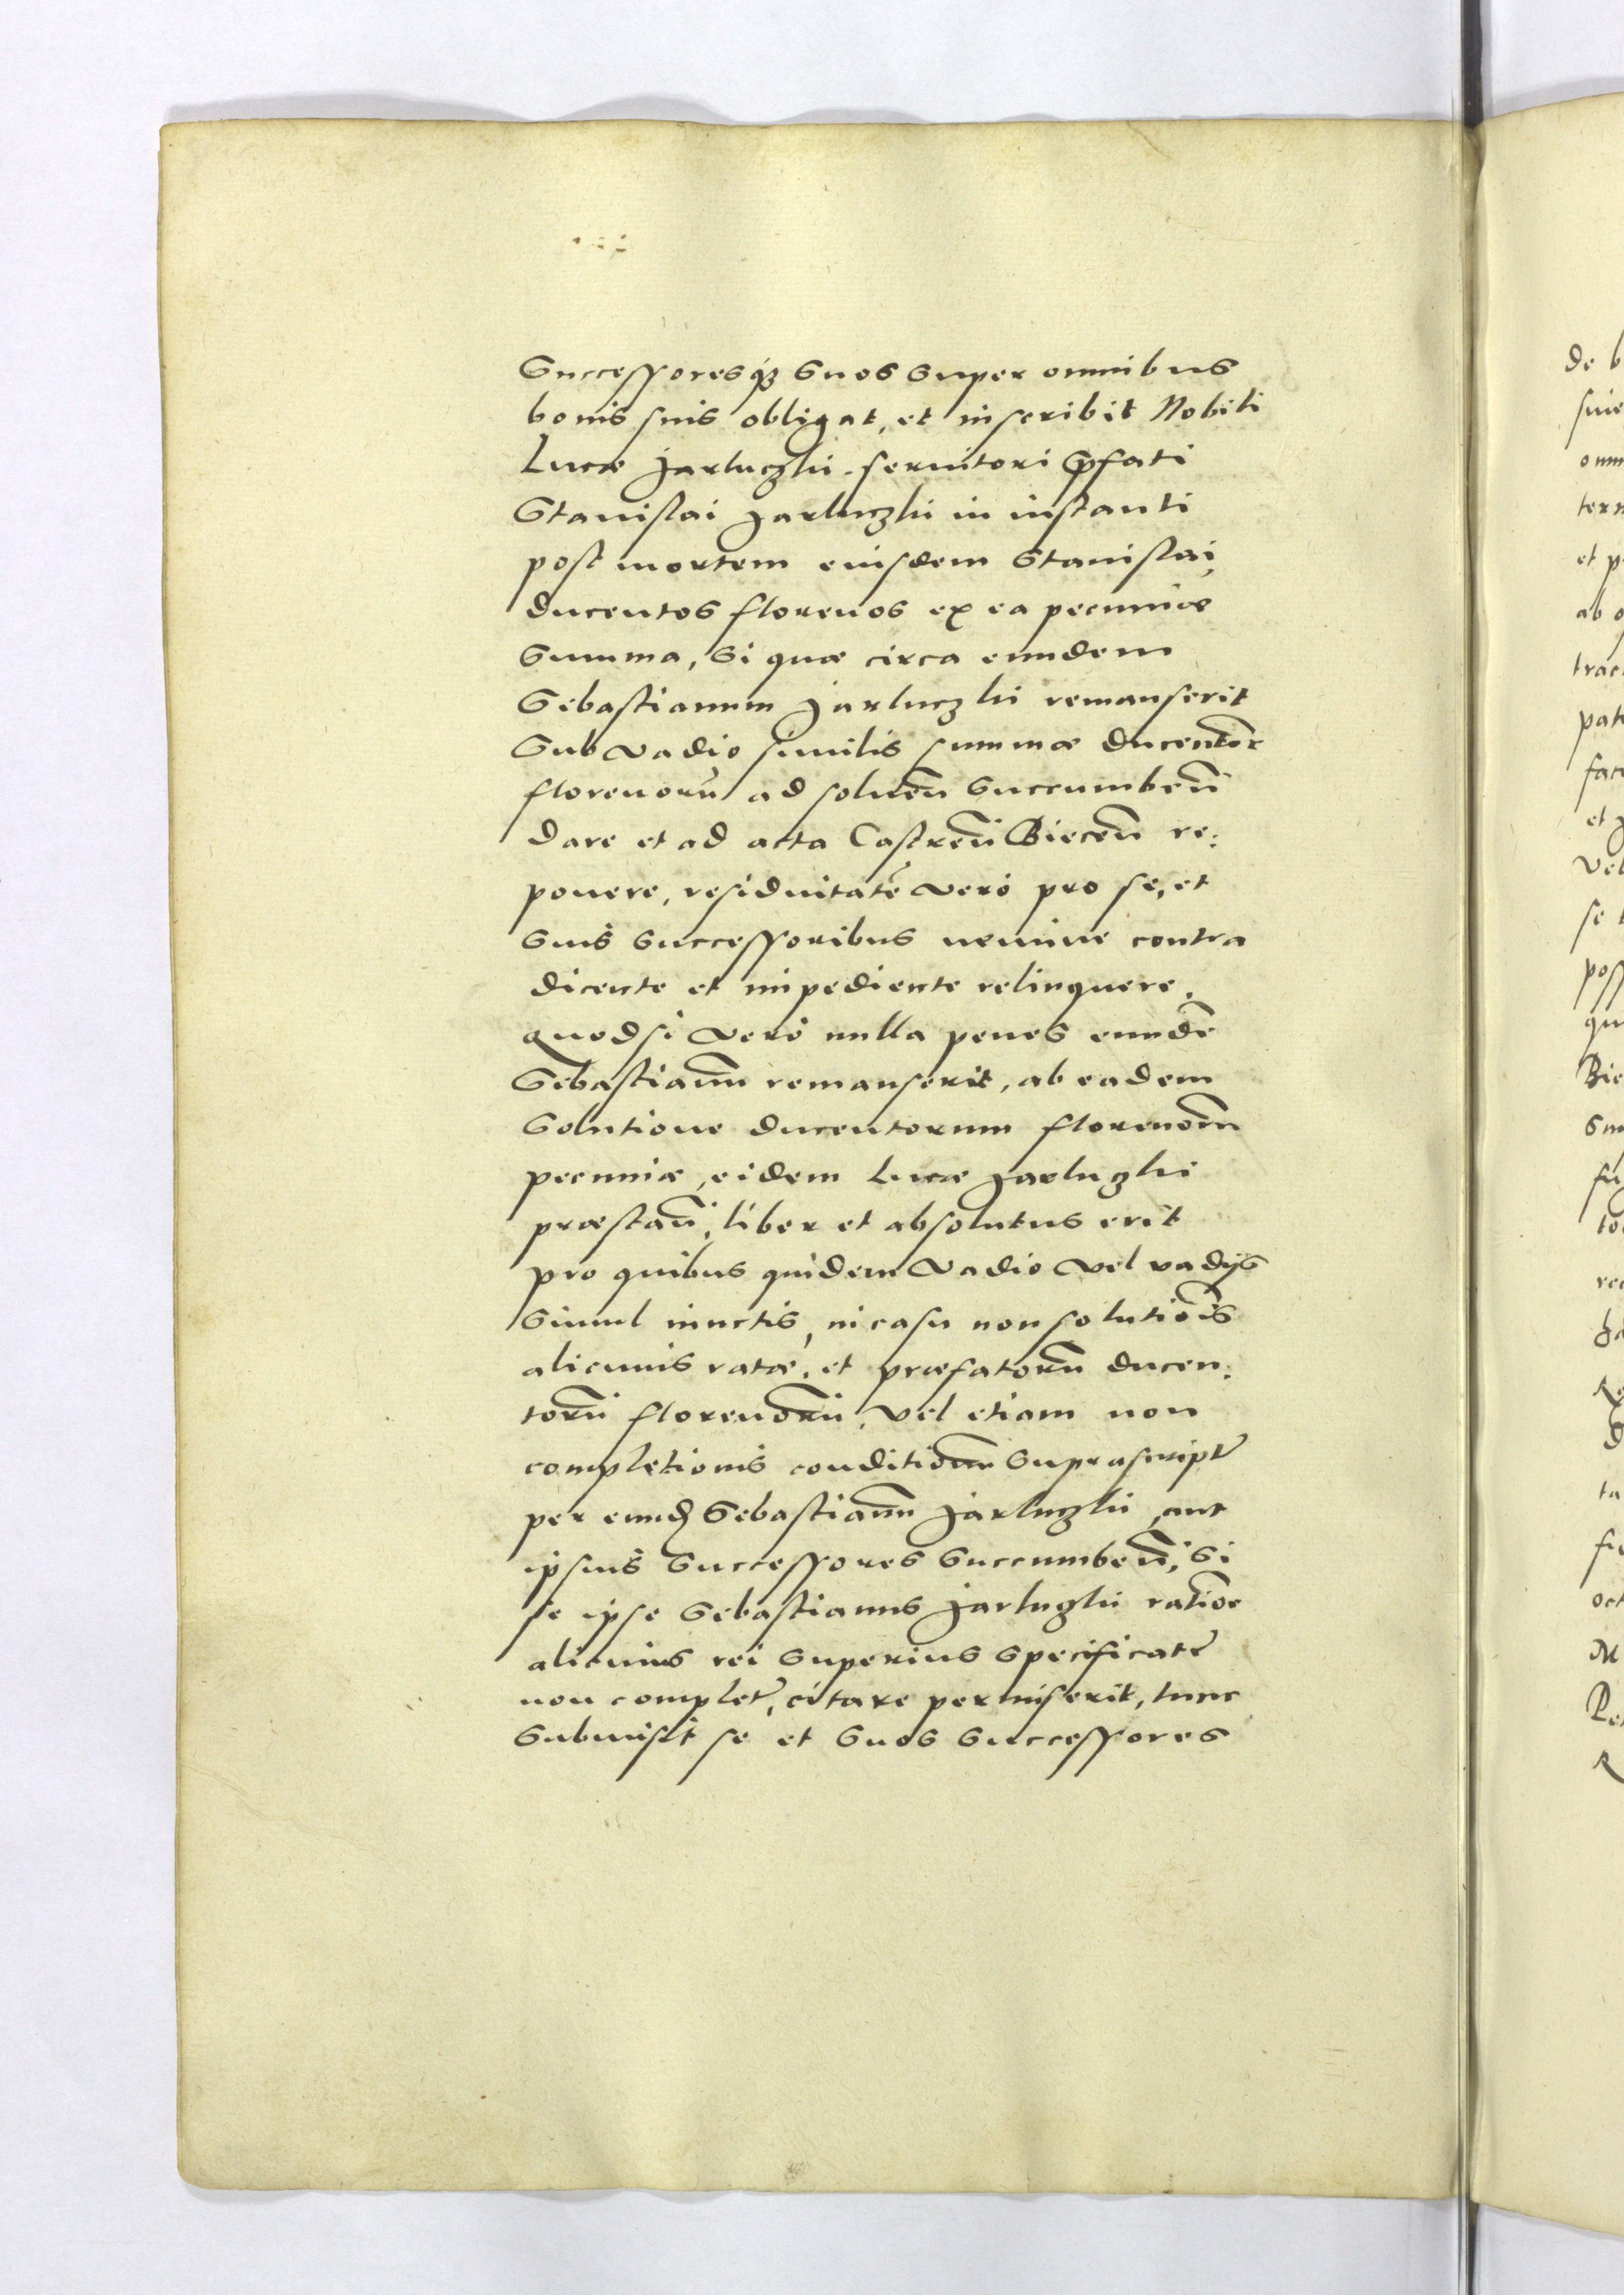 Successoresq3 suos super omnibus
bonis suis obligat, et inscribit Nobili
Lucæ Jarluczkii servitori p̄fati
Stanislai Jarluczkii in instanti
post mortem eiusdem Stanislai,
ducentos florenos ex ea pecuniæ
summa, si quæ circa eundem
Sebastianum Jarluczkii remanserit
sub vadio similis summæ ducentor̄
florenorū ad solven̄ succumben̄
dare et ad acta Castren̄ Biecen̄ re:
ponere, residuitatē vero pro se, et
suis successoribus nemine contra
dicente et impediente relinquere.
quodsi vero nulla penes eundē
Sebastianū remanserit, ab eadem
solutione ducentorum florenorū
pecuniæ, eidem Lucæ Jarluczkii
præstan̄, liber et absolutus erit
pro quibus quidem vadio vel vadijs
simul iunctis, in casu non solutiōis
alicuius ratæ, et præfatorū ducen:
torū florenorū, vel etiam non
completionis conditionū suprascript̄
per eund̄ Sebastianū Jarluczkii, aut
ipsius successores succumben̄, si
se ipse Sebastianus Jarluczkii ratiōe
alicuius rei superius specificat̄
non complet̄, citare permiserit, tunc
submisit se et suos successores